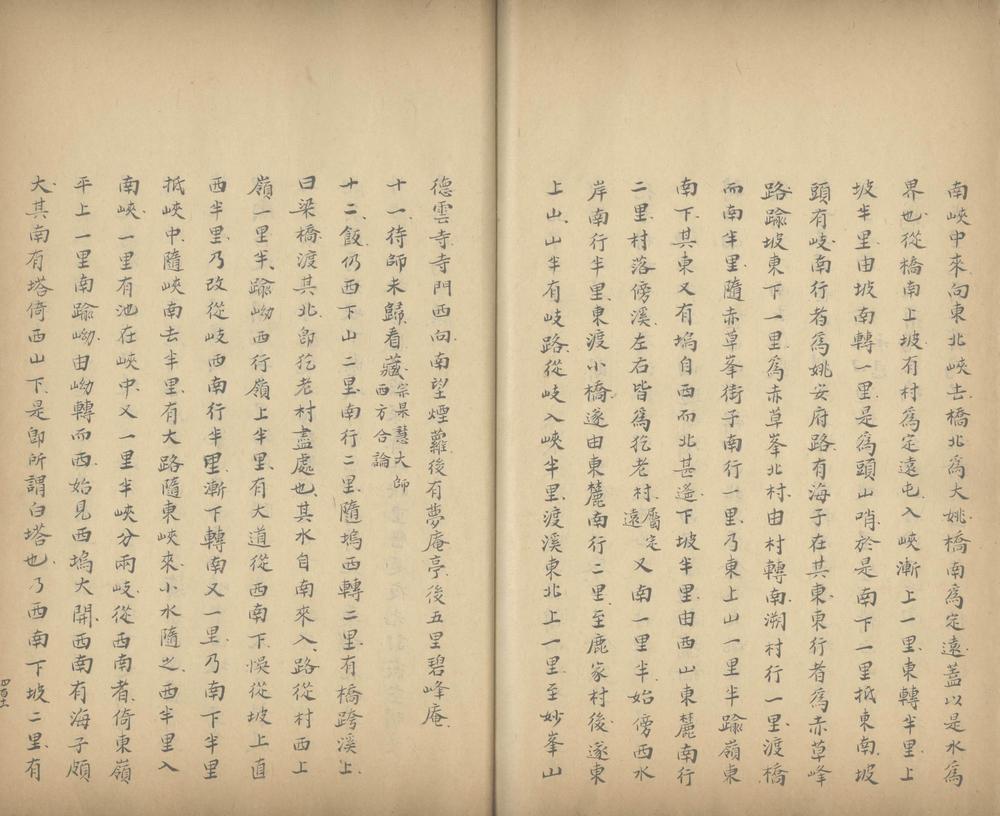 南峽中來、向東北峽去、橋北爲大姚、橋南爲定遠、蓋以是水爲
界也、從橋南上坡、有村爲定遠屯、入峽漸上一里、東轉半里、上
坡半里、由坡南轉一里、是爲頭山哨、於是南下一里、抵東南坡
頭有岐、南行者爲姚安府路、有海子在其東、東行者爲赤草峰
路、踰坡東下一里、爲赤草峯北村、由村轉南、溯村行一里、渡橋
而南半里、隨赤草峯街子南行一里、乃東上山一里半、踰嶺東
南下、其東又有塢自西而北、甚遙、下坡半里、由西山東麓南行
二里、村落傍溪左右、皆爲犵老村、屬定遠又南一里半、始傍西水
岸南行半里、東渡小橋、遂由東麓南行二里、至鹿家村後、遂東
上山、山半有岐路、從岐入峽半里、渡溪東北上一里、至妙峯山
德雲寺、寺門西向、南望煙蘿、後有夢庵亭、後五里碧峰庵、
十一、待師未歸、看藏、宗杲慧大師西方合論
十二、飯、仍西下山二里、南行二里、隨塢西轉二里、有橋跨溪上、
曰梁橋、渡其北、卽犵老村盡處也、其水自南來入、路從村西上
嶺一里半、踰坳西行嶺上半里、有大道從西南下、悞從坡上直
西半里、乃改從岐西南行半里、漸下轉南又一里、乃南下半里
抵峽中、隨峽南去半里、有大路隨東峽來、小水隨之、西半里入
南峽、一里有池在峽中、又一里半、峽分兩岐、從西南者、倚東嶺
平上一里、南踰坳、由坳轉而西、始見西塢大開、西南有海子頗
大、其南有塔倚西山下、是卽所謂白塔也、乃西南下坡二里、有